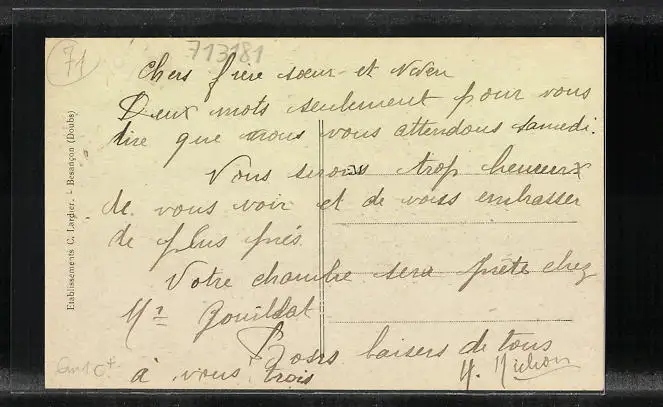 71
713181
Chers frère sœur et Neveu
Deux mots seulement pour vous
dire que nous vous attendons samedi.
Nous serons trop heureux
de vous voir et de vous embrasser
de plus près.
Votre chambre sera prête chez
Mr
Bons baisers de tous
à vous trois
Etablissements C. Lardier. - Besançon (Doubs)